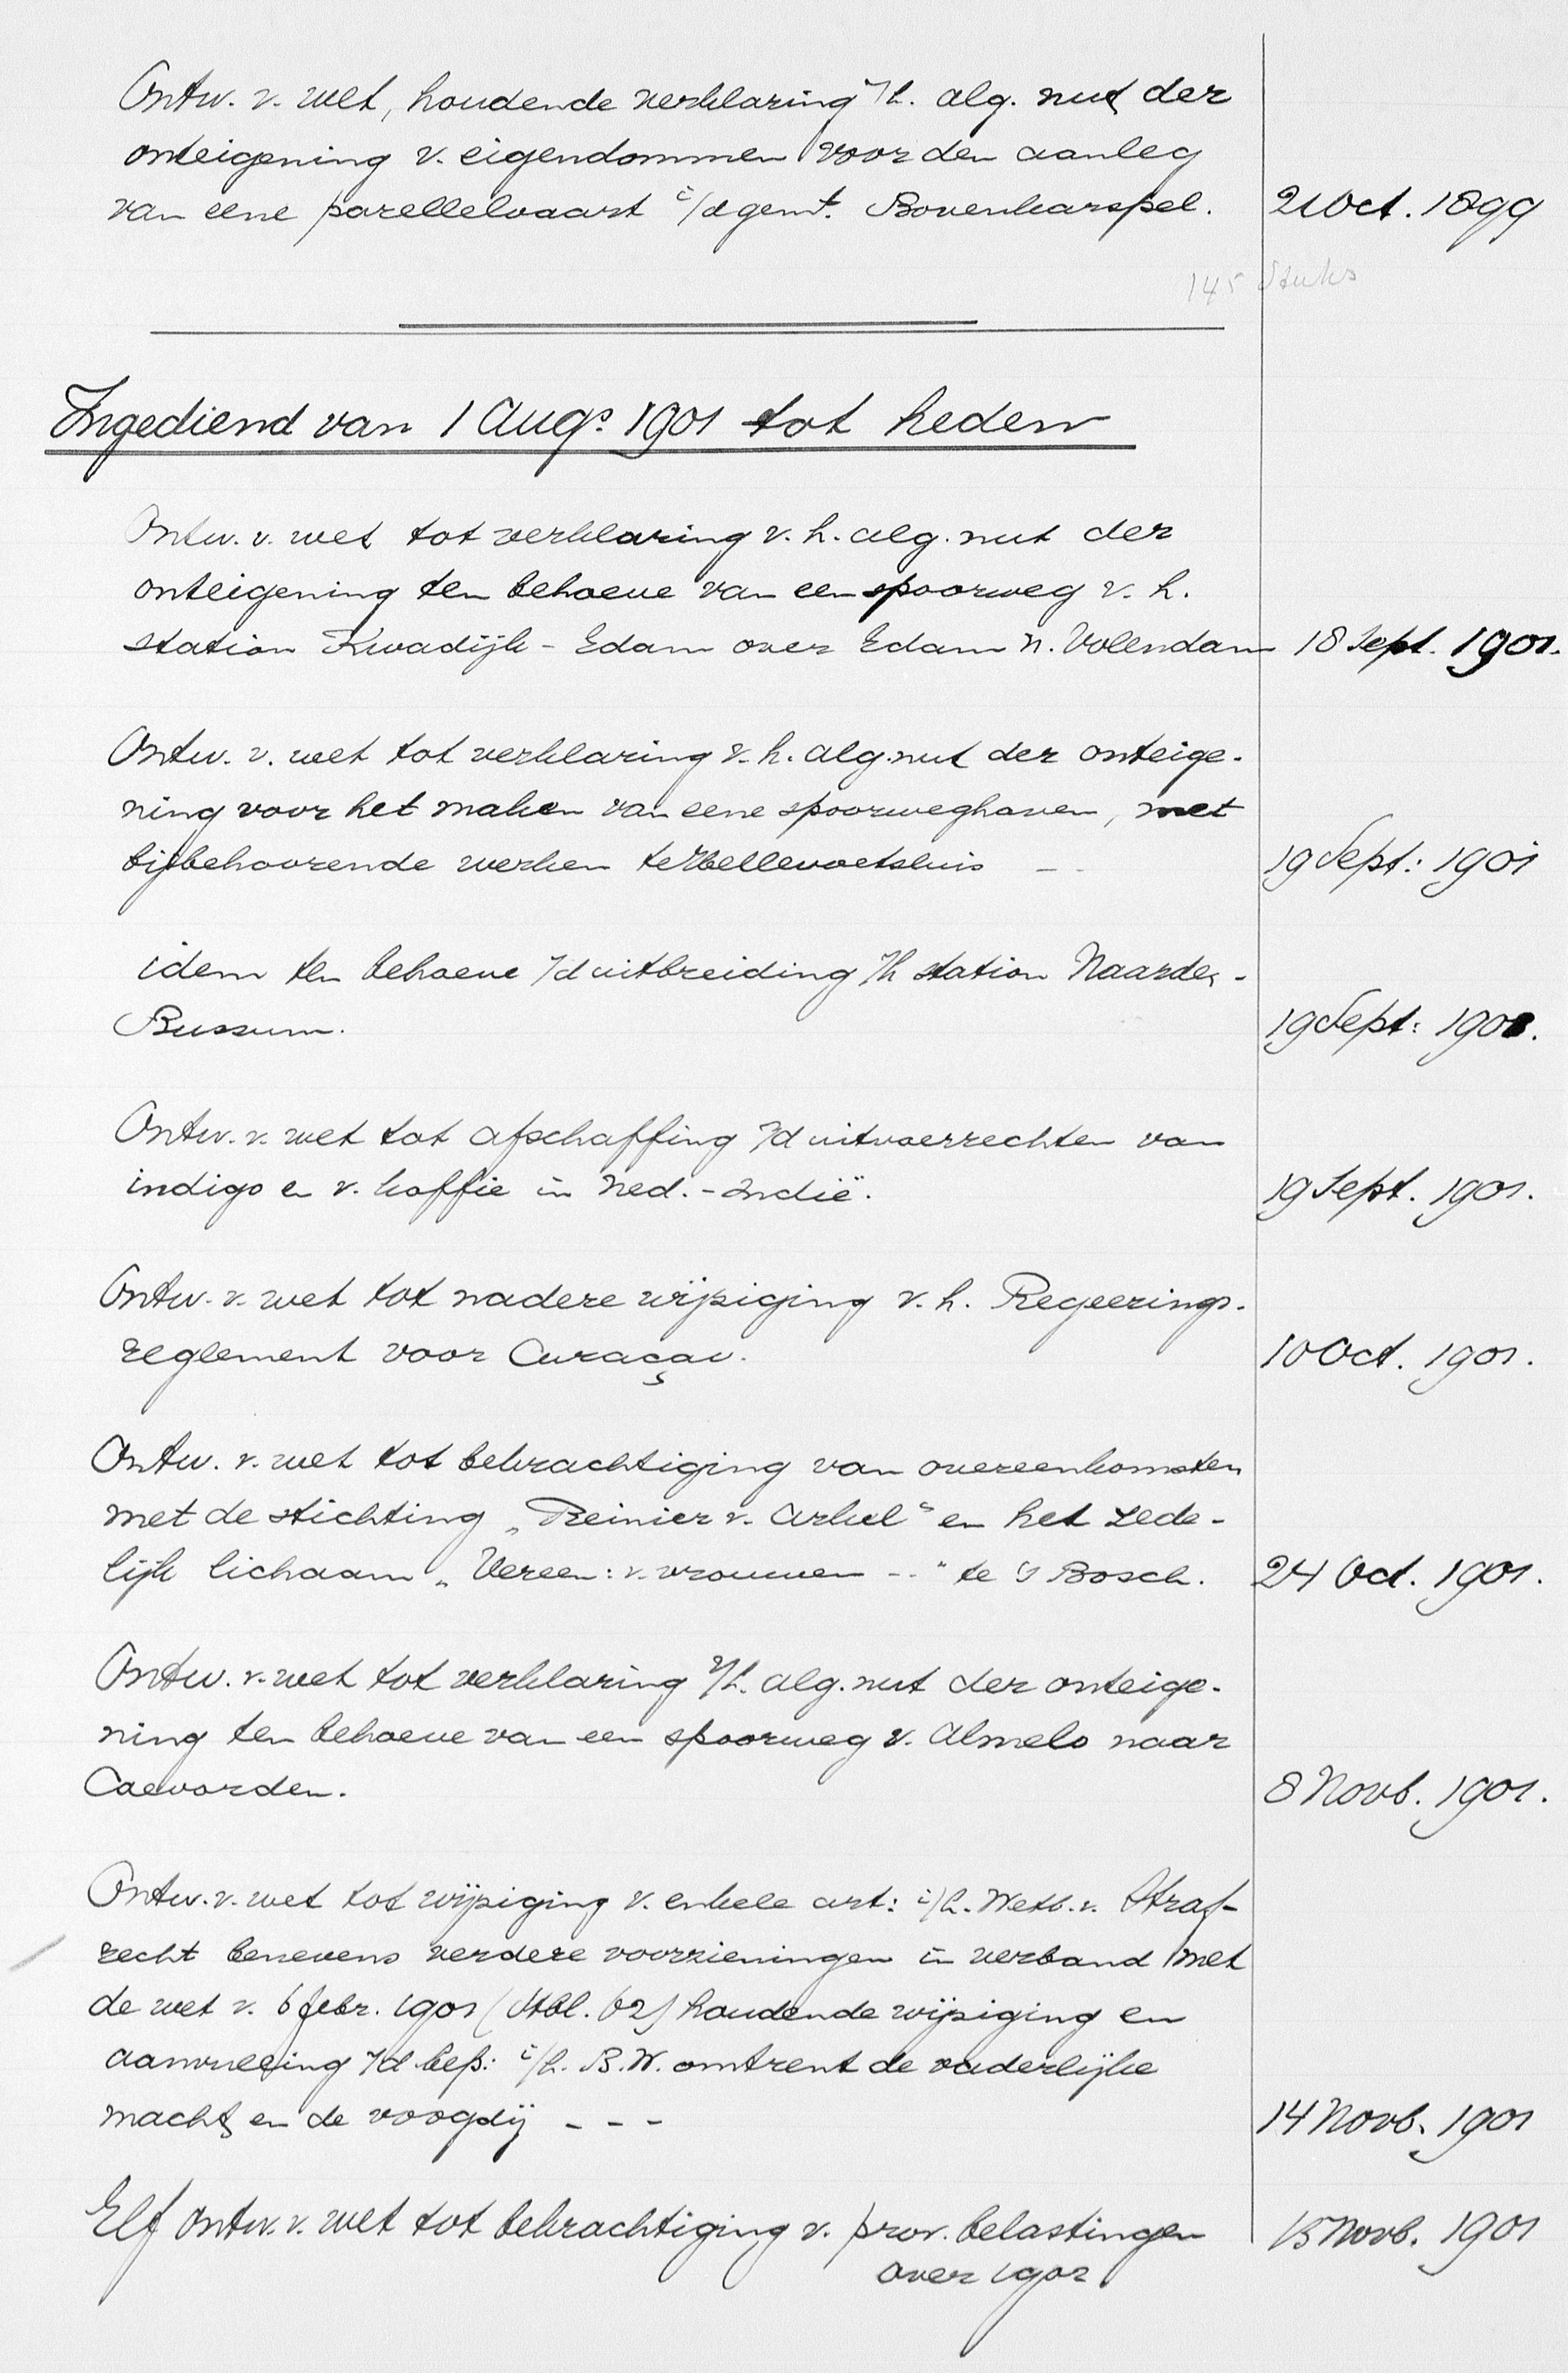 Ontw. v. wet, houdende verklaring v/h. alg. nut der
onteigening v. eigendommen voor den aanleg
van eene parellelvaart i/d gemt. Bovenkarspel. 21 Oct. 1899
145 Stuks
Ingediend van 1 Augs. 1901 tot heden
Ontw. v. wet tot verklaring v. h. alg. nut der
onteigening ten behoeve van een spoorweg v. h.
station Kwadijk - Edam over Edam n. Volendam 18 Sept. 1901.
Ontw. v. wet tot verklaring v. h. alg. nut der onteige-
ning voor het maken van eene spoorweghaven, met
bijbehoorende werken te Hellevoetsluis -- 19 Sept: 1901
idem ten behoeve v/d uitbreiding v/h station Naarden-
Bussum. 19 Sept: 1901.
Ontw. v. wet tot afschaffing v/d uitvoerrechten van
indigo en v. koffie in Ned.-Indië. 19 Sept. 1901.
Ontw. v. wet tot nadere wijziging v. h. Regeerings-
reglement voor Curaçao. 10 Oct. 1901.
Ontw. v. wet tot bekrachtiging van overeenkomsten
met de stichting „Reinier v. Arkel" en het zede-
lijk lichaam „Vereen: v. vrouwen --" te 's Bosch. 24 Oct. 1901.
Ontw. v. wet tot verklaring v/h. alg. nut der onteige-
ning ten behoeve van een spoorweg v. Almelo naar
Coevorden. 8 Novb. 1901.
Ontw. v. wet tot wijziging v. enkele art: i/h. Wetb. v. Straf-
recht benevens verdere voorzieningen in verband met
de wet v. 6 Febr. 1901 (Stbl. 62) houdende wijziging en
aanvulling v/d bep: i/h. B.W. omtrent de vaderlijke
macht en de voogdij --- 14 Novb. 1901
Elf Ontw. v. wet tot bekrachtiging v. prov. belastingen 15 Novb. 1901
over 1902